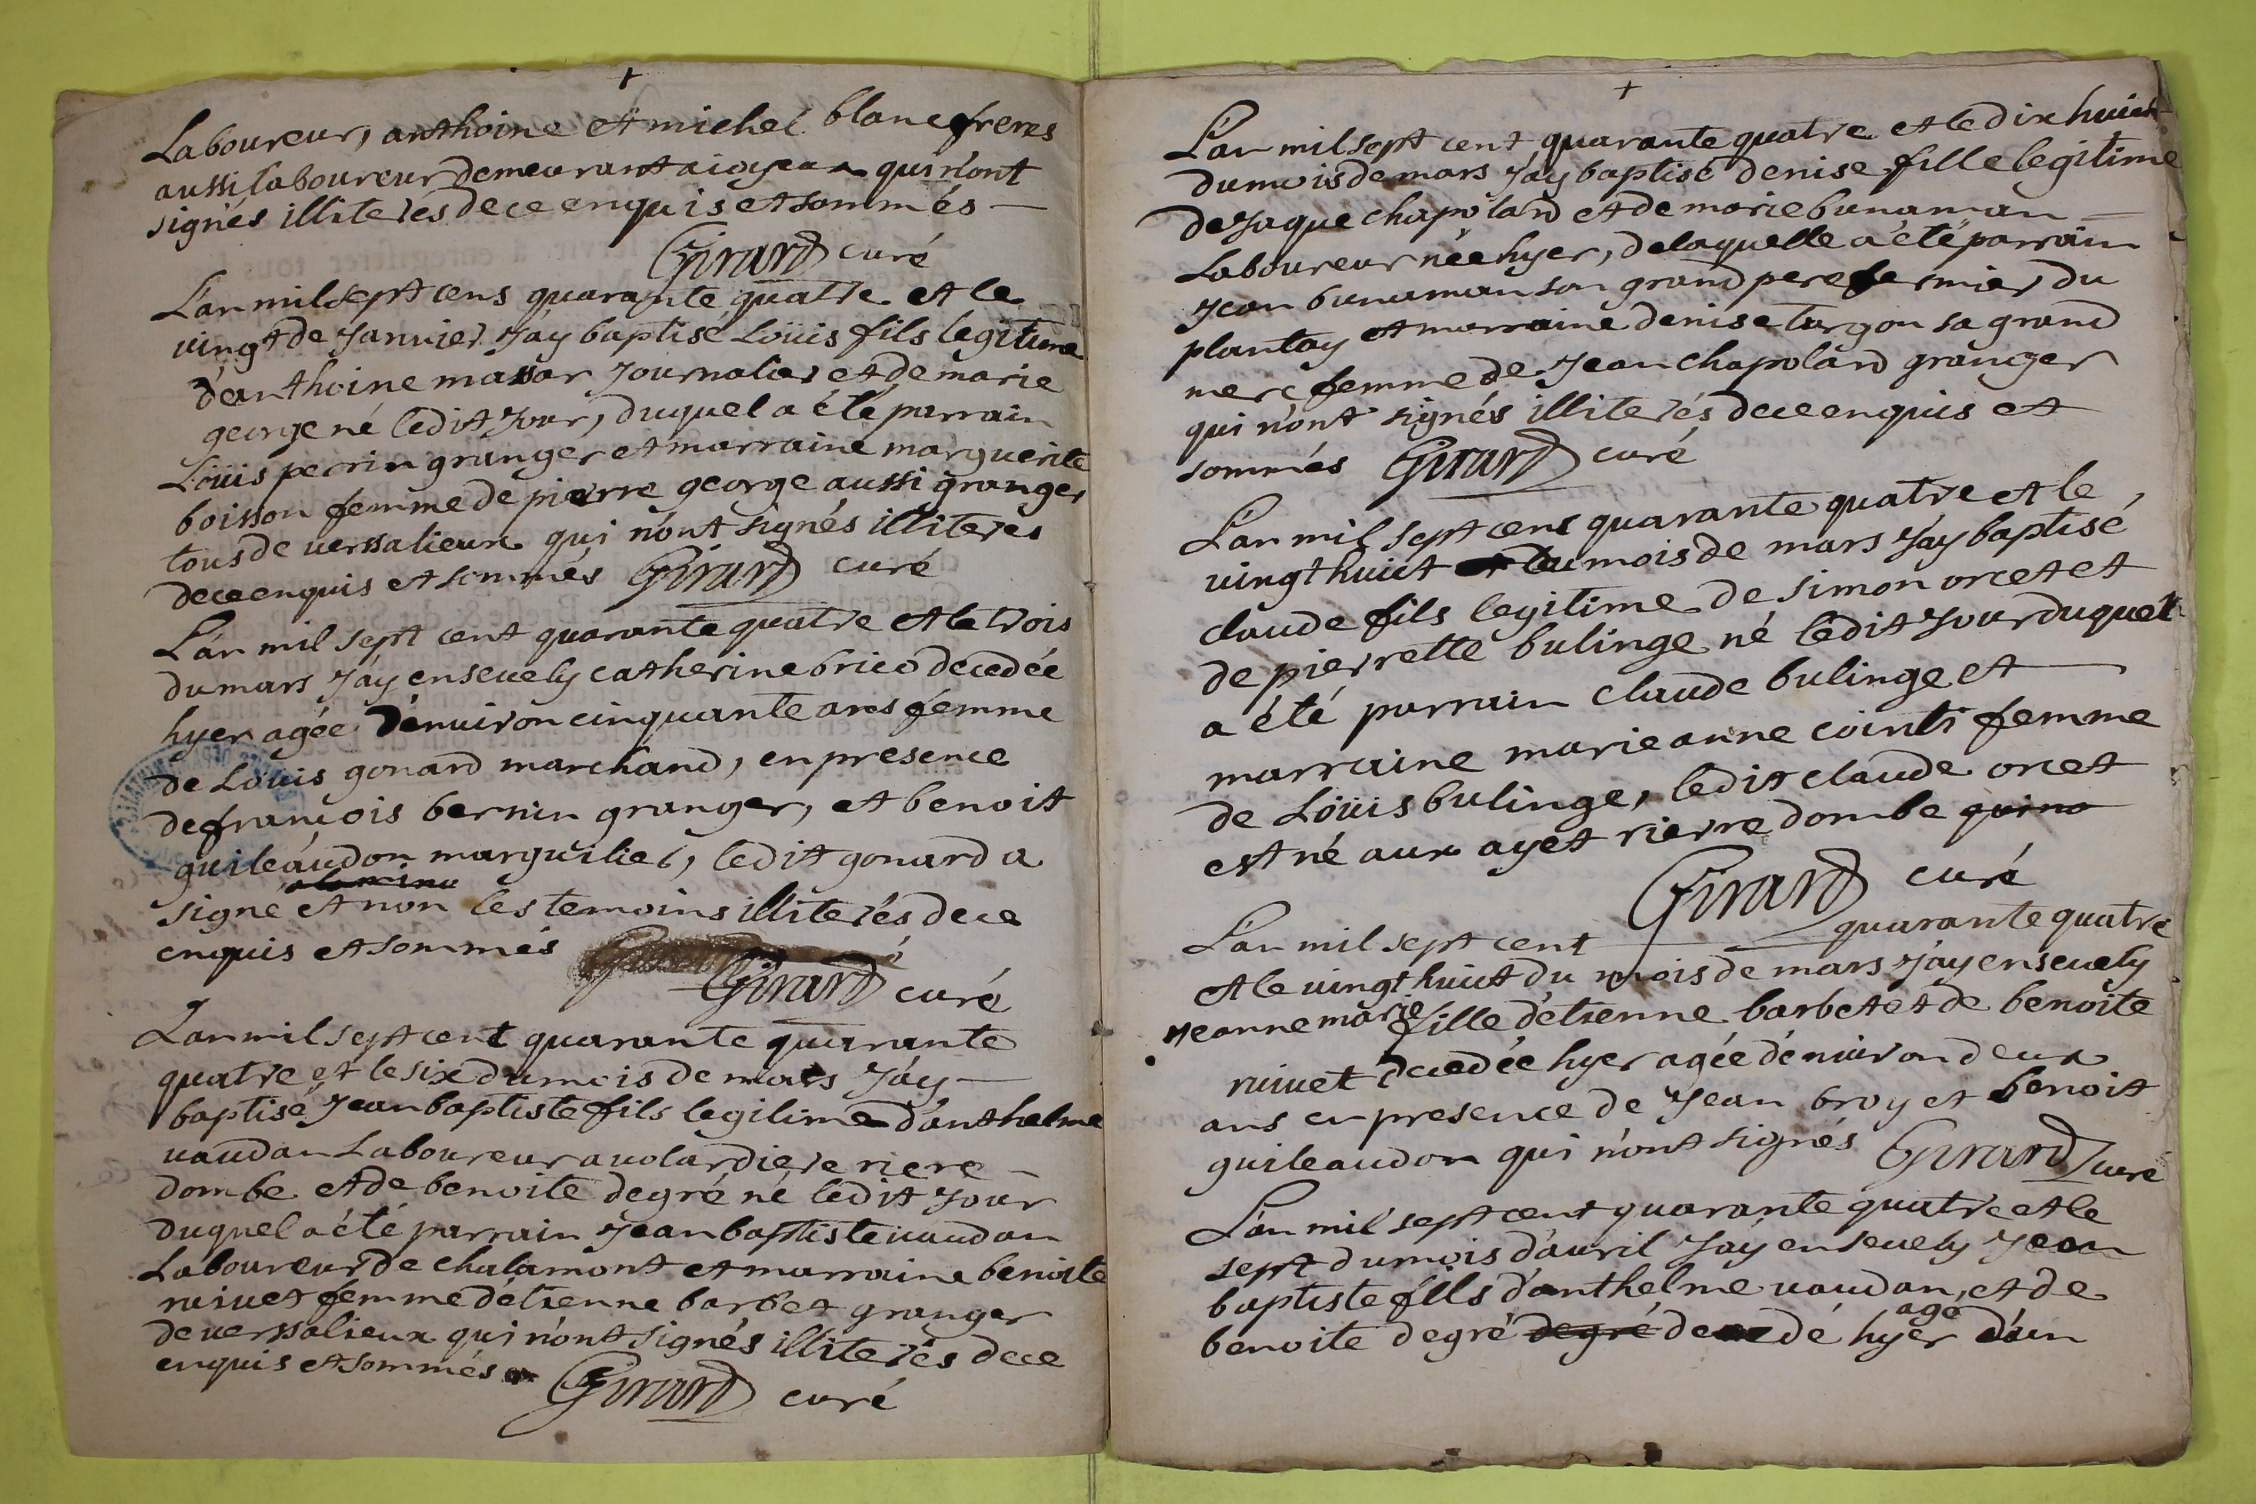 +
Laboureur, anthoine et michel blanc freres
aussi laboureur demeurant a qui n'ont
signés illiterés de ce enquis et sommés
Girard curé
L'an mil sept cens quarante quatre et le
vingt de Janvier J'ay baptisé Loüis fils legitime
d'anthoine massar Journalier et de marie
george né ledit Jour, duquel a été parrain
Loüis perrin granger et marraine marguerite
boisson femme de pierre george aussi granger
tous de verssalieux qui n'ont signés illiteres
de ce enquis et sommés Girard curé
L'an mil sept cent quarante quatre et le trois
du mars J'ay ensevely catherine brico decedée
hyer agée d'environ cinquante ans femme
de Loüis gonard marchand, en presence
de françois bernin granger, et benoit
guileaudon marguilier, ledit gonard a
signé et non les temoins illiterés de ce
enquis et sommés
Girard curé
L'an mil sept cent quarante quarante
quatre et le six du mois de mars J'ay
baptisé Jean baptiste fils legitime d'anthelme
vaudan Laboureur a volardiere riere
dombe et de benoite degré né ledit Jour
duquel a été parrain Jean baptiste vaudan
Laboureur de chalamont et marraine benoite
nivet femme d'etienne barbet granger
de verssalieux qui n'ont signés illiterés de ce
enquis et sommés Girard curé
+
L'an mil sept cent quarante quatre et le dix huict
du mois de mars J'ay baptisé denise fille legitime
de Jaque chapolard et de marie bunaman
Laboureur née hyer, de laquelle a été parrain
Jean bunaman son grand pere fermier du
plantay et marraine denise targon sa grand
mere femme de Jean chapolard granger
qui n'ont signés illiterés de ce enquis et
sommés Girard curé
L'an mil sept cens quarante quatre et le
vingt huict du mois de mars J'ay baptisé
claude fils legitime de simon orcet et
de pierrette bulinge né ledit Jour duquel
a été parrain claude bulinge et
marraine marie anne cointi femme
de Loüis bulinge, ledit claude orcet
est né aux ayet rierre dombe qui no
Girard curé
L'an mil sept cent quarante quatre
et le vingt huict du mois de mars J'ay ensevely
Jeanne marie fille d'etienne barbet et de benoite
nivet decedée hyer agée d'environ deux
ans en presence de Jean broyet benoit
guileaudon qui n'ont signés Girard curé
L'an mil sept cent quarante quatre et le
sept du mois d'avril J'ay ensevely Jean
baptiste fils d'anthelme vaudan, et de
benoite degré degré decedé hyer agé d'un